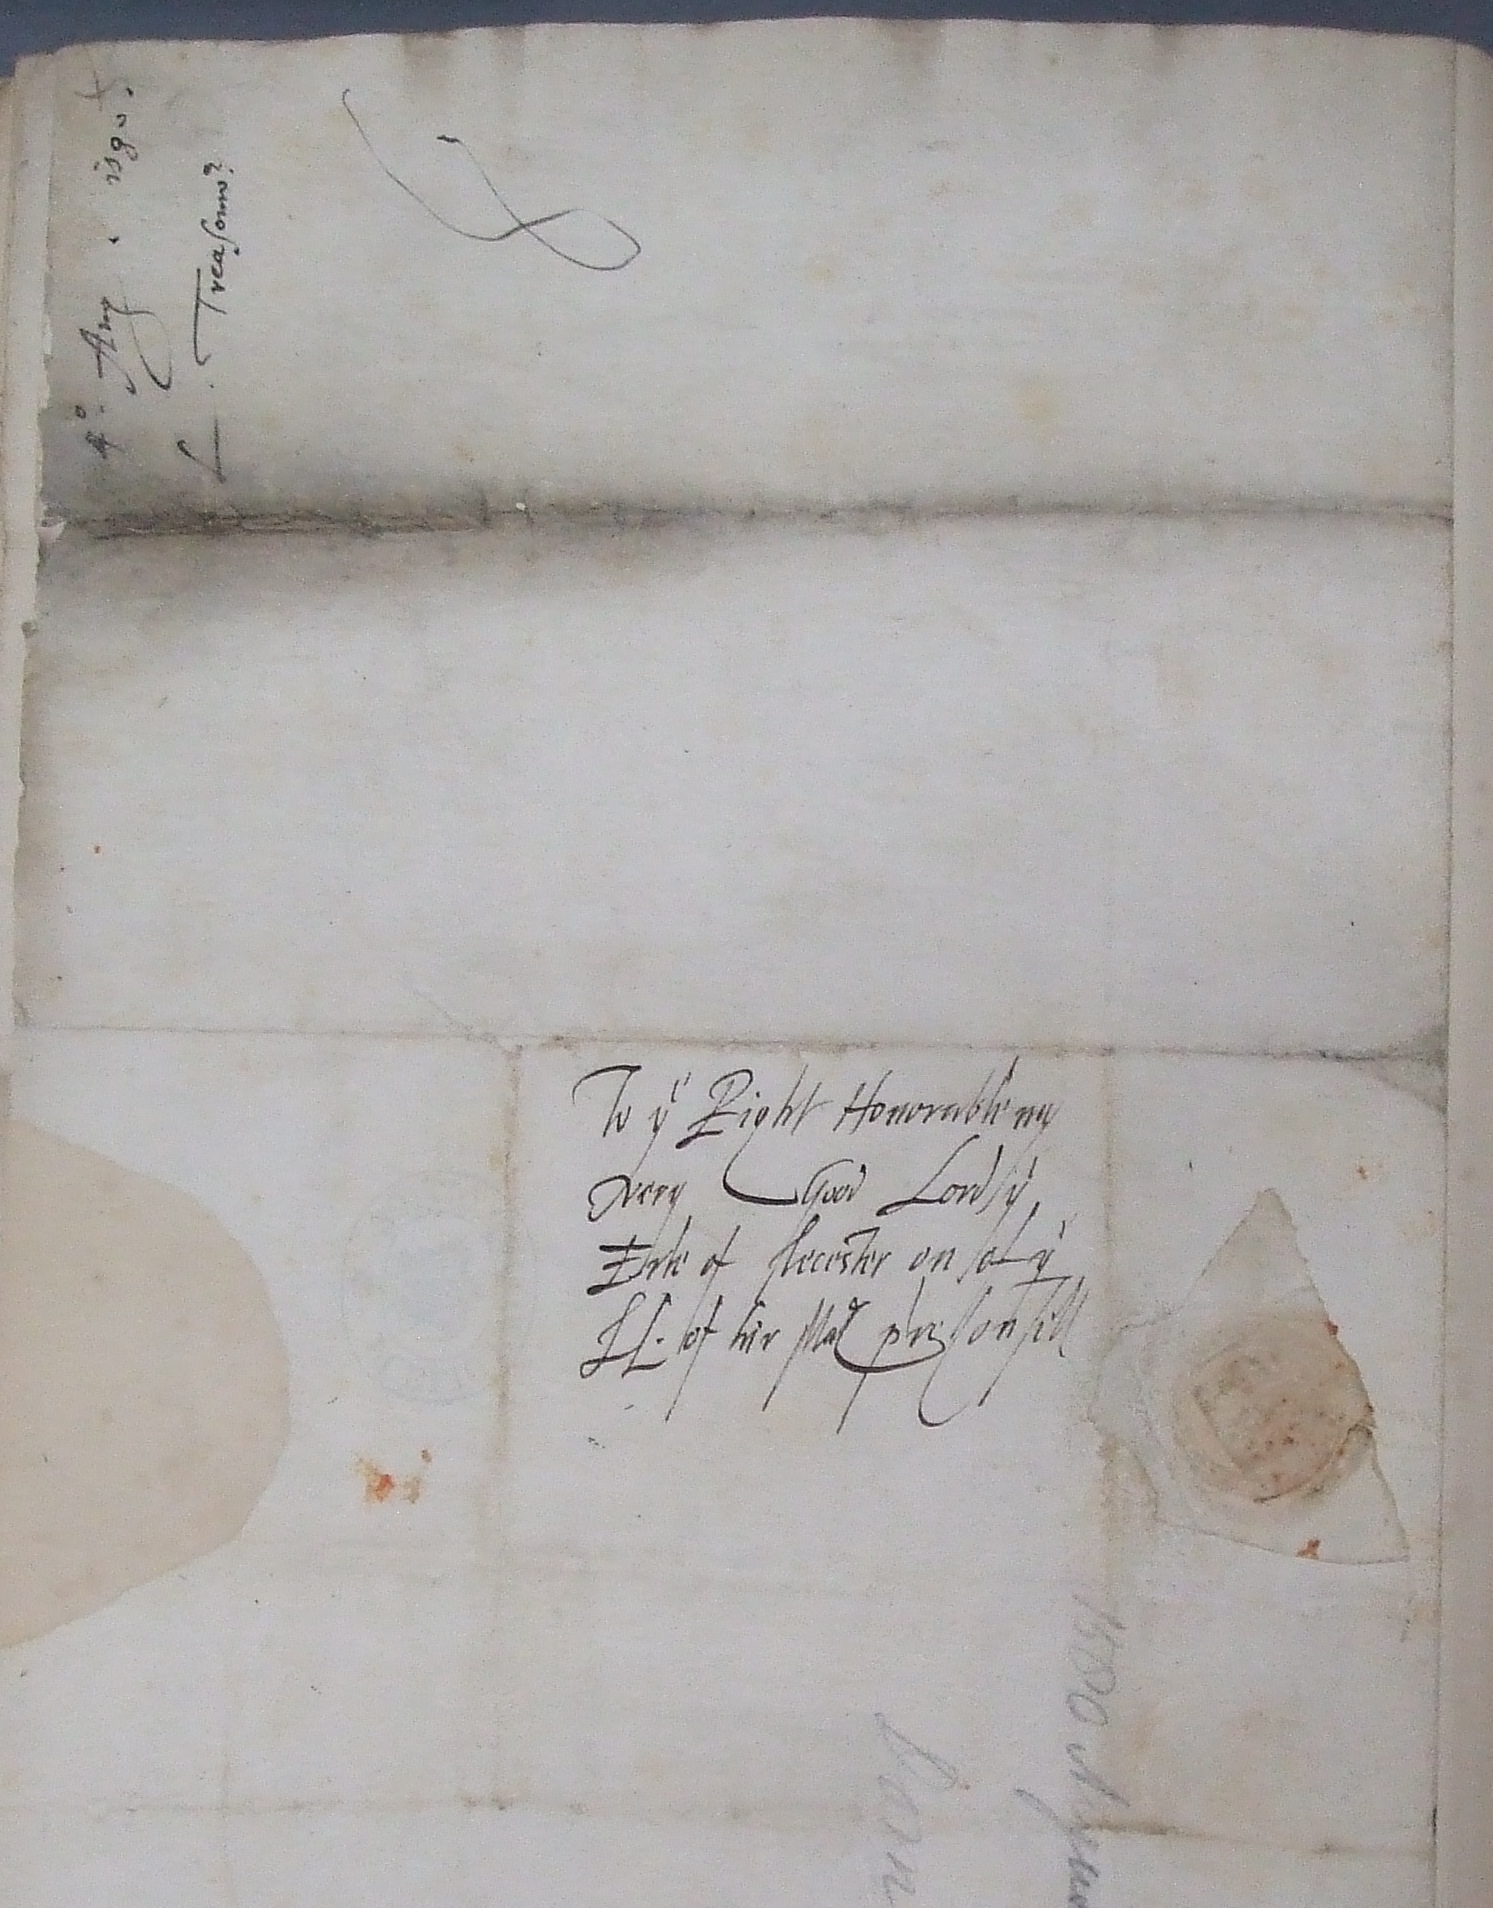 4º. Aug. 1580.
L. Treasouror
To yᵉ Right Honorable my
very Good Lord yᵉ
Erle of Lecester on of yᵉ
LL. of hir Maᵗ preconsell
1580 August